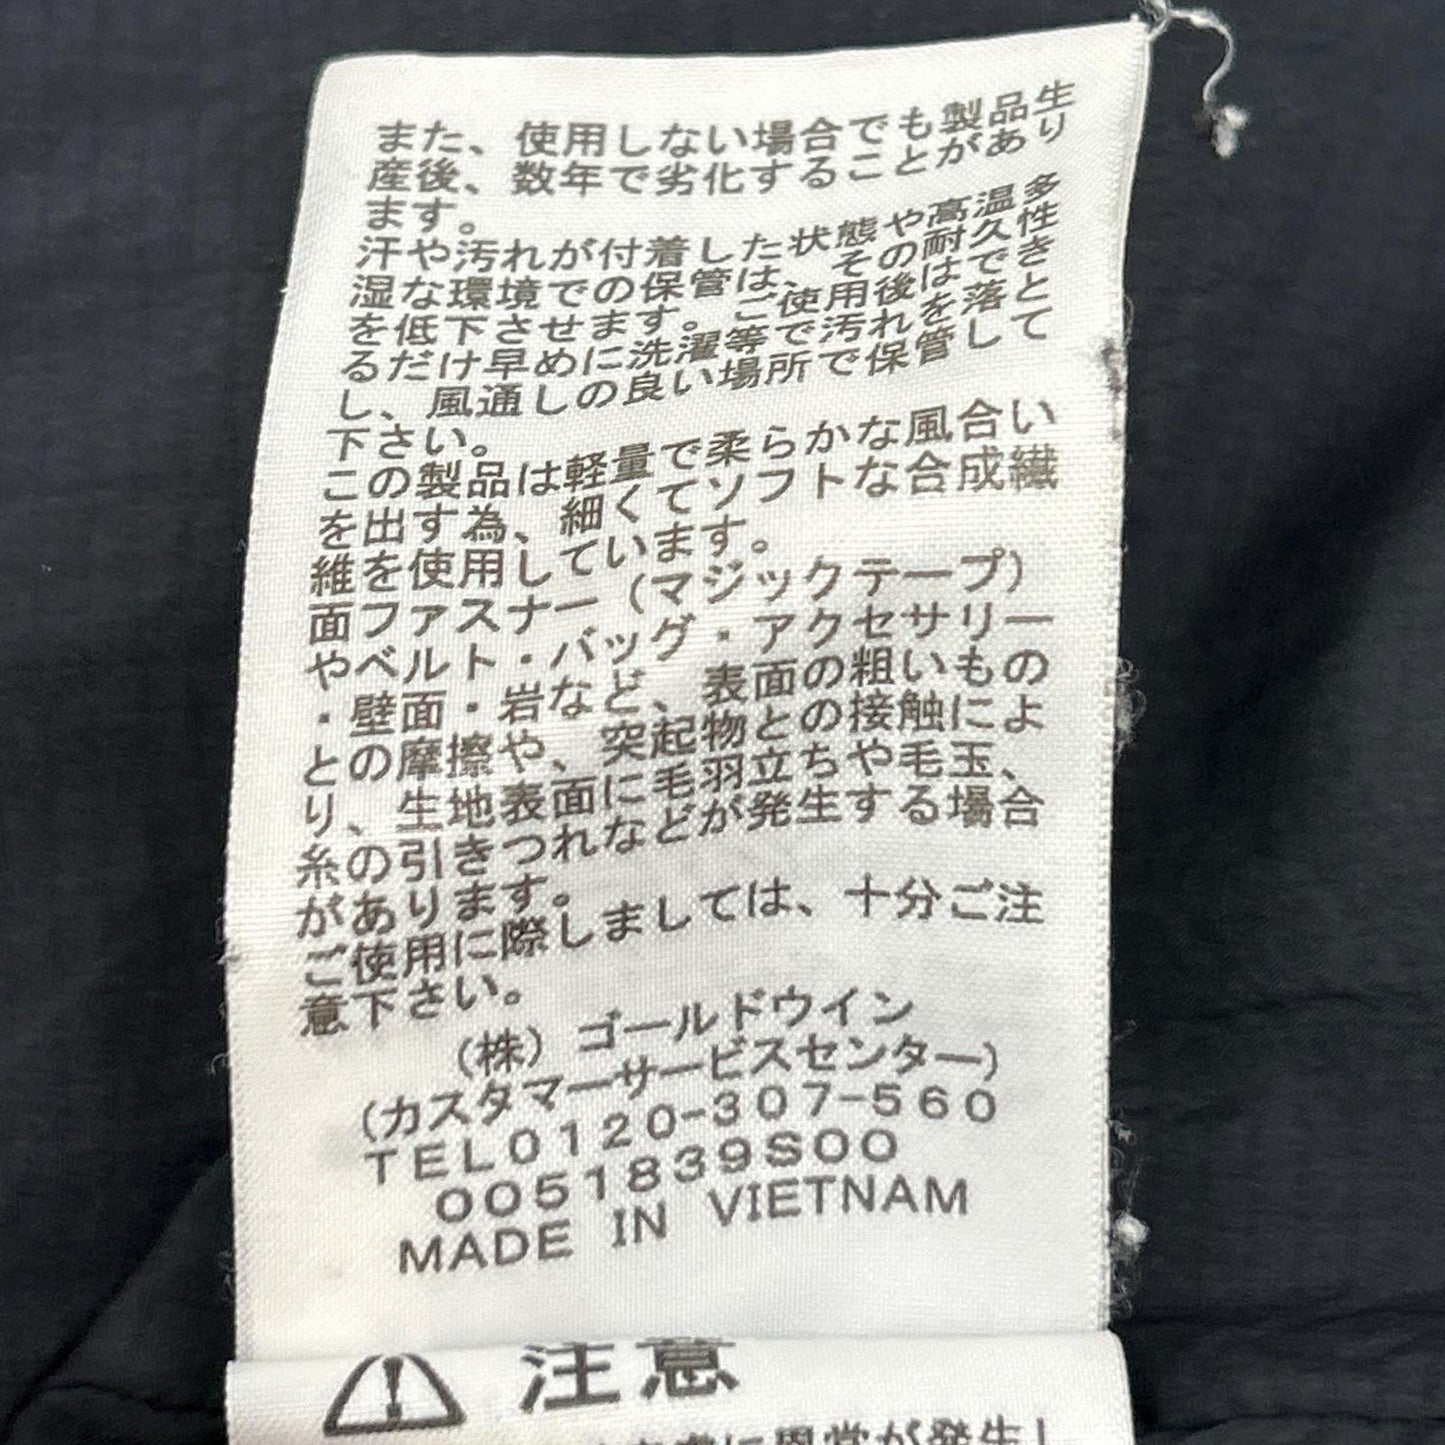 また、使用しない場合でも製品生
産後、数年で劣化することがあり
ます。
汗や汚れが付着した状態や高温多
湿な環境での保管は、その耐久性
を低下させます。ご使用後はでき
るだけ早めに洗濯等で汚れを落と
し、風通しの良い場所で保管して
下さい。
この製品は軽量で柔らかな風合い
を出す為、細くてソフトな合成繊
維を使用しています。
面ファスナー（マジックテープ）
やベルト・バッグ・アクセサリー
・壁面・岩など、表面の粗いもの
との摩擦や、突起物との接触によ
り、生地表面に毛羽立ちや毛玉、
糸の引きつれなどが発生する場合
があります。
ご使用に際しましては、十分ご注
意下さい。
（株）ゴールドウイン
（カスタマーサービスセンター）
TEL0120-307-560
0051839S00
MADE IN VIETNAM
注意
に異常が発生し